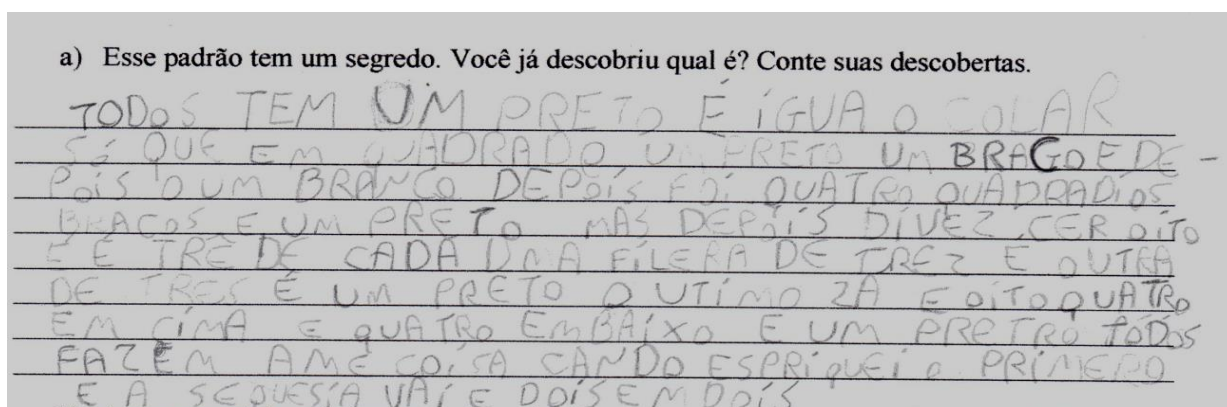 a) Esse padrão tem um segredo. Você já descobriu qual é? Conte suas descobertas.
TODOS TEM UM PRETO É IGUA O COLAR
SÓ QUE EM QUADRADO UM PRETO UM BRAGO E DE -
POIS O UM BRANCO DEPOIS FOI QUATRO QUADRADIOS
BRACOS E UM PRETO MAS DEPOIS DIVEZ CER OITO
E É TRÊ DE CADA UMA FILERA DE TREZ E OUTRA
DE TRES É UM PRETO O UTIMO ZA E OITO QUATRO
EM CIMA E QUATRO EMBAIXO E UM PRETRO TODOS
FAZEM AME COISA CANDO ESPRIQUEI O PRIMERO
E A SEQUESIA VAI E DOIS EM DOIS